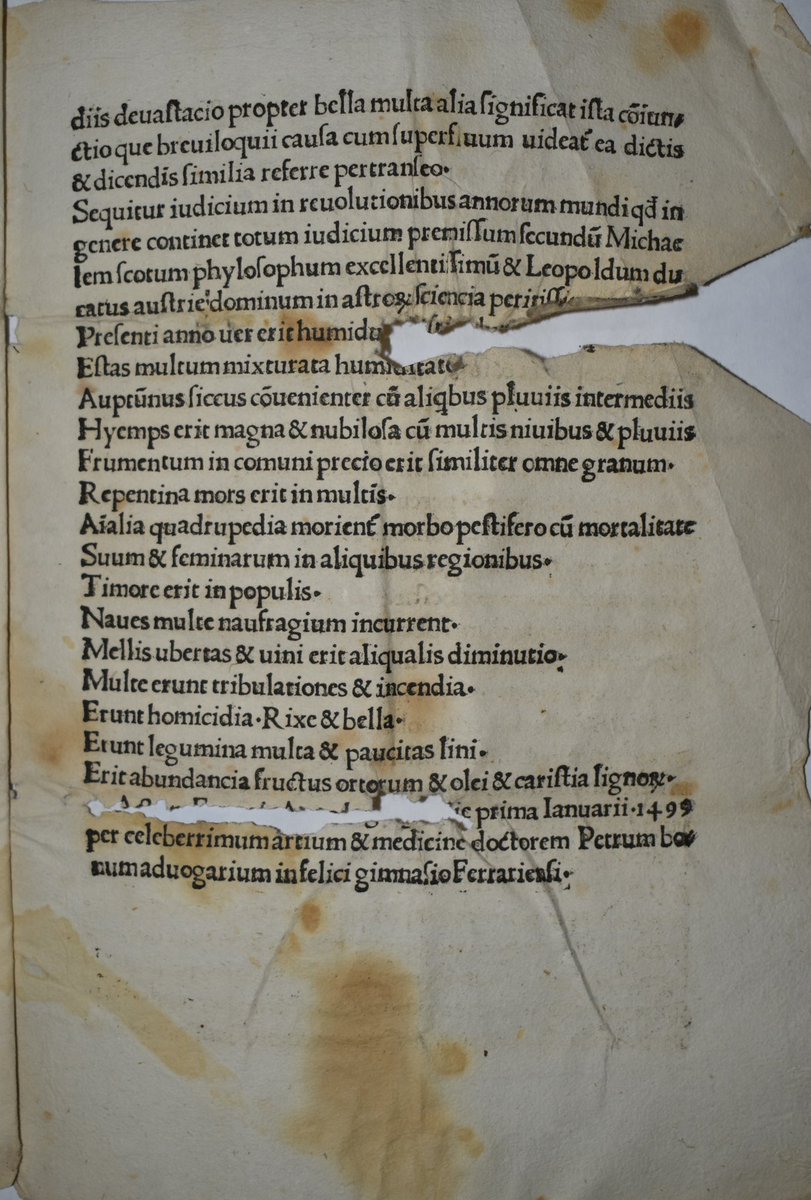 diis deuaſtacio propter bella multa alia ſignificat iſta cōiun⸗
ctio que breuiloquii cauſa cum ſuperfluum uideat᷑ ea dictis
& dicendis ſimilia referre pertranſeo.
Sequitur iudicium in reuolutionibus annorum mundi qd̄ in
genere continet totum iudicium premiſſum ſecundū Michae
lem ſcotum phyloſophum excellentiſſimū & Leopoldum du
catus auſtrie dominum in aſtroꝝ ſciencia
Preſenti anno uer erit
Eſtas multum mixturata humiditate
Auptūnus ſiccus cōuenienter cū aliqbus pluuiis intermediis
Hyemps erit magna & nubiloſa cū multis niuibus & pluuiis
Frumentum in comuni precio erit ſimiliter omne granum.
Repentina mors erit in multis.
Aīalia quadrupedia morient᷑ morbo peſtifero cū mortalitate
Suum & feminarum in aliquibus regionibus.
Timore erit in populis.
Naues multe naufragium incurrent.
Mellis ubertas & uini erit aliqualis diminutio.
Multe erunt tribulationes & incendia.
Erunt homicidia. Rixe & bella.
Erunt legumina multa & paucitas lini.
Erit abundancia fructus ortorum & olei & cariſtia lignoꝝ.
prima Ianuarii. 1499
per celeberrimum artium & medicine doctorem Petrum bo
num aduogarium in felici gimnaſio Ferrarienſi.